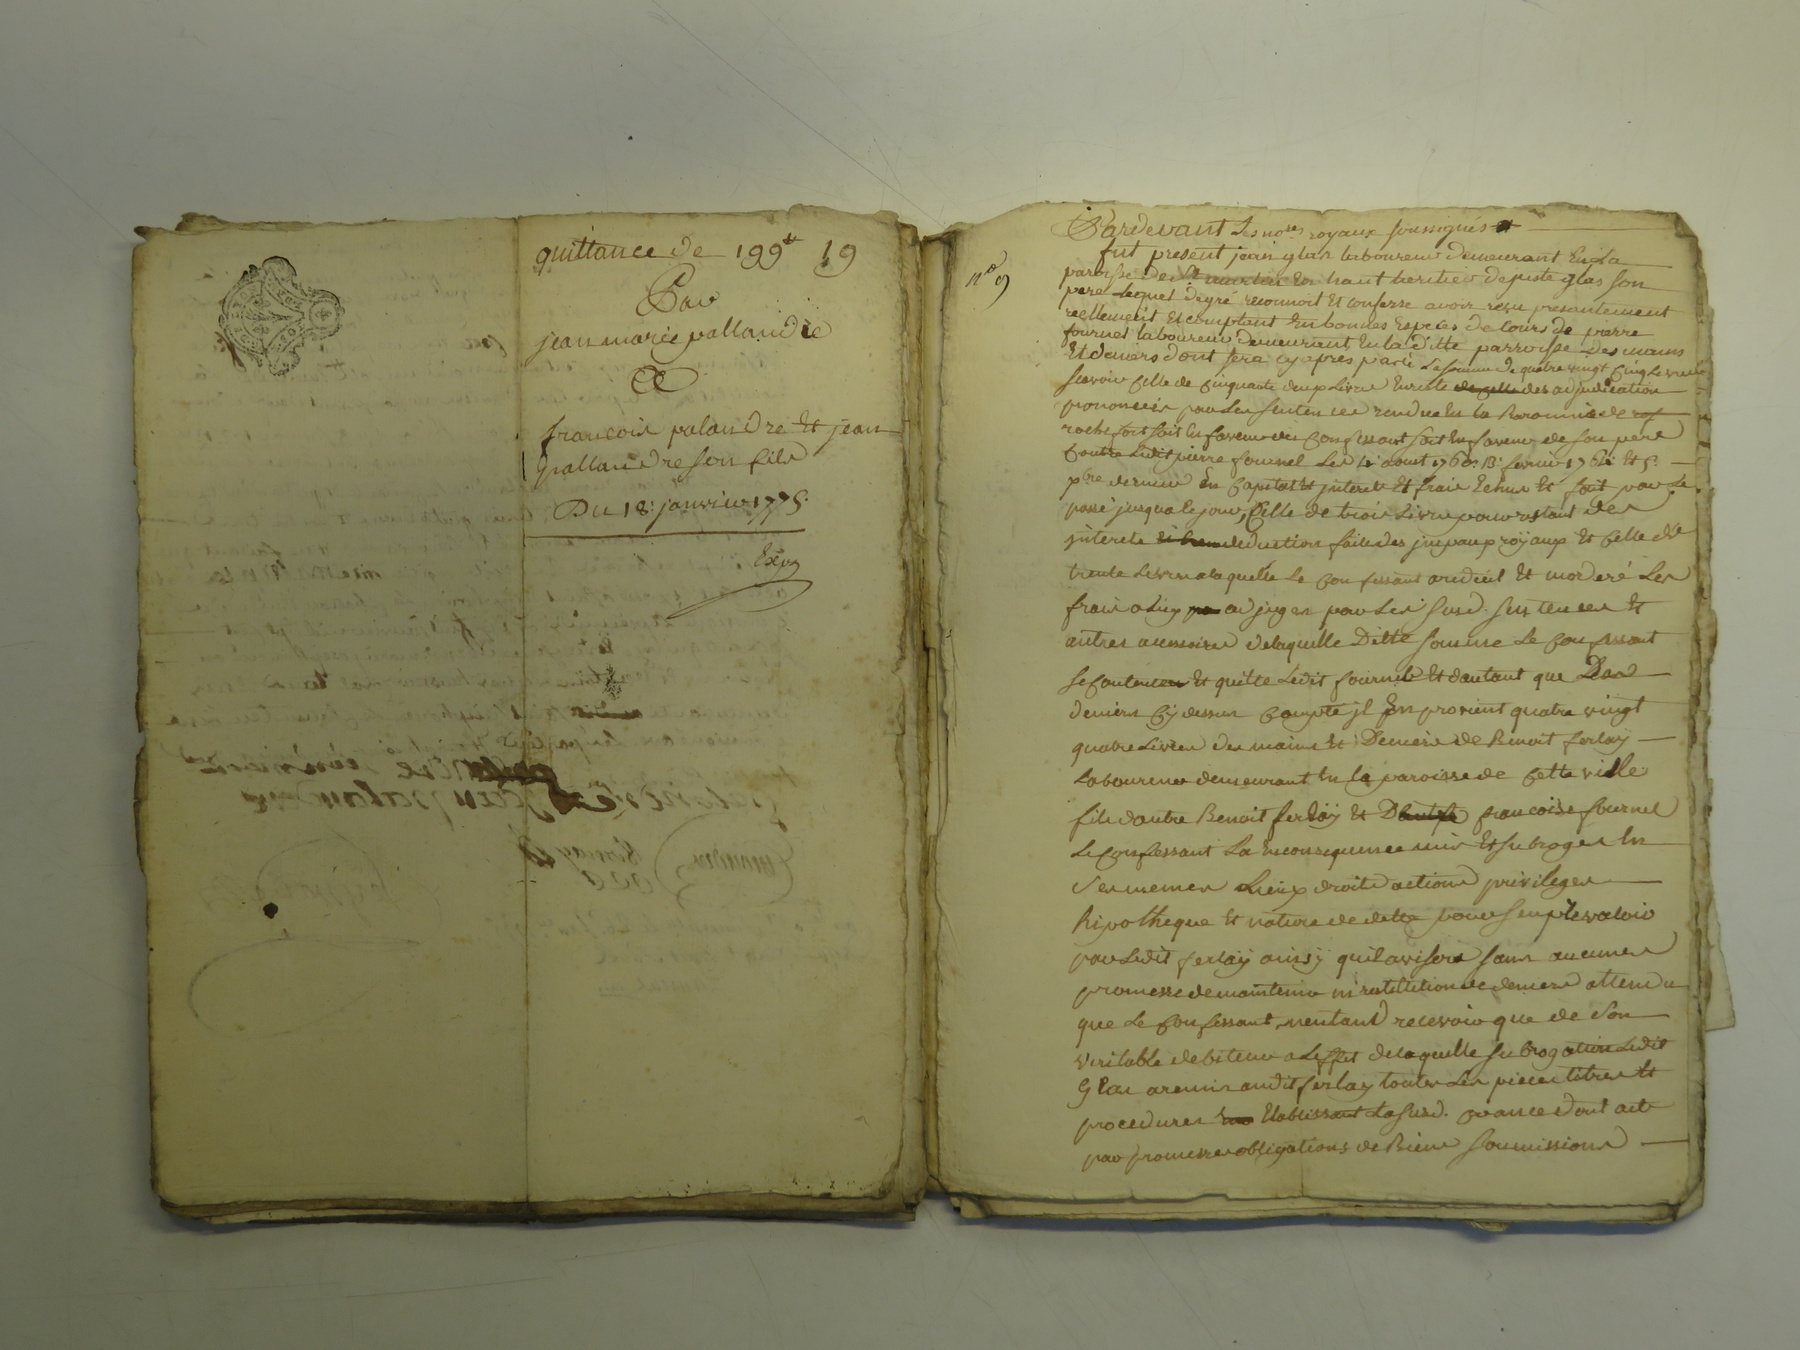 quittance de 199ᵗᵗ 19
Par
jean marie pallandre
A
francois palandre et jean
pallandre son fils
Du 18. janvier 1775.
Exp
nᵒ 9
Pardevant les noʳᵉˢ royaux soussignés
fut present jean glas laboureur demeurant En La
paroisse de St martin En haut heritier de juste glas son
pere Lequel de gré reconnoit Et confesse avoir reçu presentement
reellement Et comptant En bonnes Especes de Cours de pierre
fournel laboureur demeurant En la ditte parroisse des mains
Et deniers dont sera cy apres parlé La somme de quatre vingt Cinq Livres
scavoir Celle de Cinquante deux Livres En reste des adjudication
prononcés par Les sentences rendues En la Baronnie de
rochefort soit En faveur du Confessant soit En faveur de son pere
Contre Ledit pierre fournel Les aoust 1760. 13 fevrier 176 Et 5.
pbre dernier En Capital Et jnterets Et frais Echus Et
passé jusqu'a le jour, Celle de trois Livres pour restant des
jnterets deduction faite des jmpaux royaux Et Celle de
trente Livres a laquelle Le Confessant a reduit Et moderé Les
frais a Luy adjuges par Les susd. sentences Et
autres accessoires de laquelle Ditte somme Le Confessant
se Contente Et quitte Ledit fournel Et d'autant que Des
deniers Cy dessus Compté jl En provient quatre vingt
quatre Livres des mains Et Deniers de Benoit ferlay
Laboureur demeurant En la paroisse de Cette ville
fils d'autre Benoit ferlay Et D francoise fournel
Le Confessant La En consequence mis Et subrogé En
ses memes Lieux droits actions privileges
hipotheque Et nature de dette pour s'en prevaloir
par Ledit ferlay ainsy qu'il avisera sans aucune
promesse de maintenue ni restitution de deniers attendu
que Le Confessant n'entend recevoir que de son
veritable debiteur a L'effet de laquelle subrogation Ledit
Glas a remis audit ferlay toutes Les pieces titres Et
procedures Etablissant La susd. creance dont acte
par promesses obligations de Biens soumissions